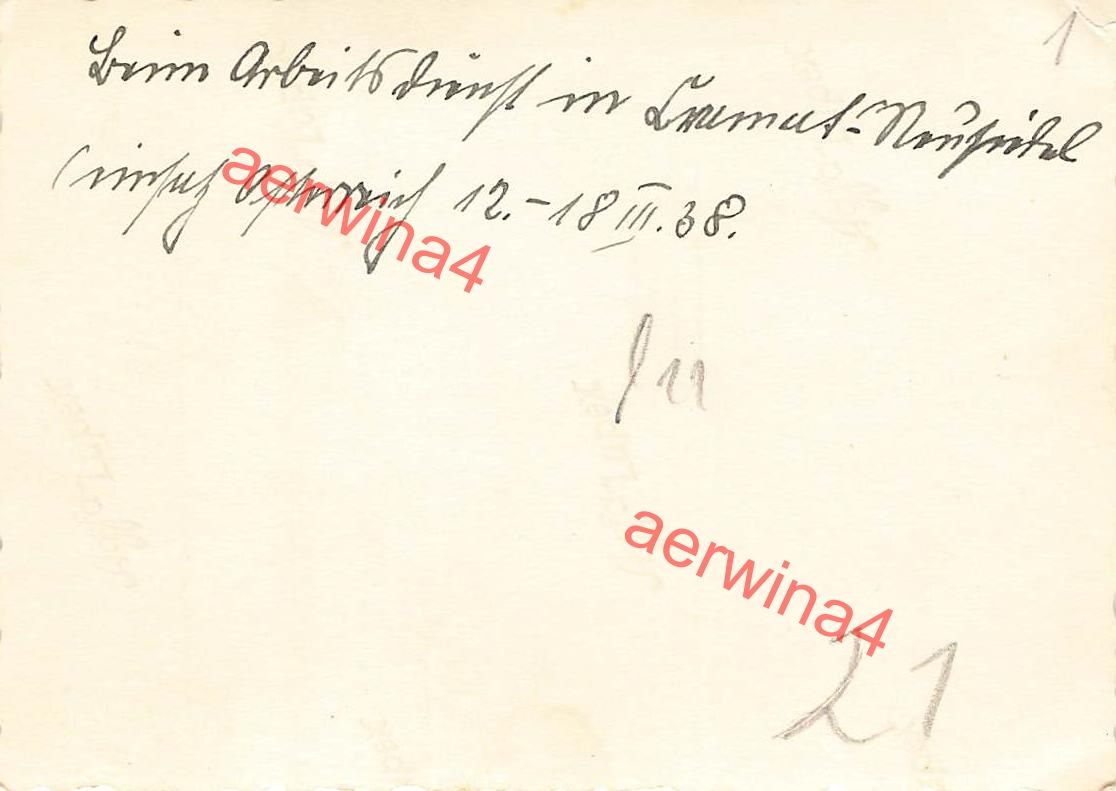 1
Beim Arbeitsdienst in Cramat-Neusiedel
(Einsatz Österreich 12.-18 III. 38.
aerwina4
aerwina4
21